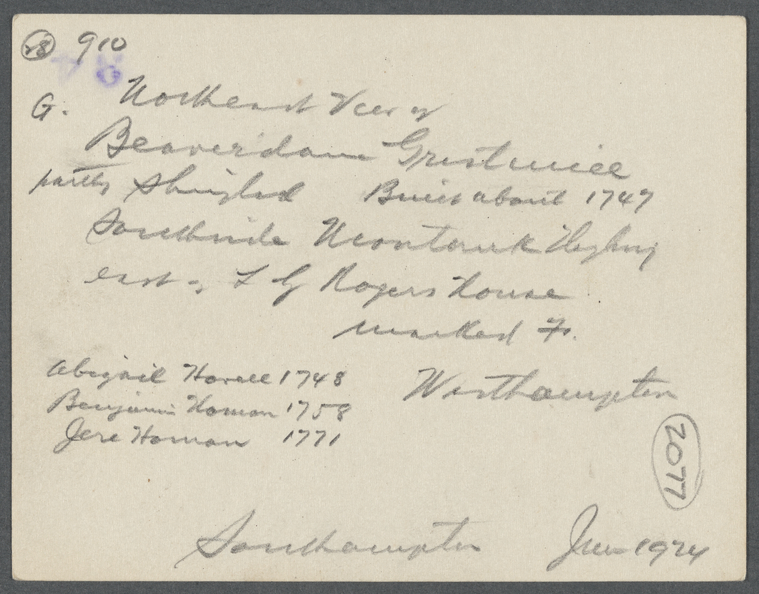 28 910
G. Northeast View of
Beaverdam Gristmill
partly Shingled Built about 1747
Southside Montauk Highway
east of L G Rogers house
marked F.
Abigail Howell 1748
Benjamin Homan 1758
Jere Homan 1771
Westhampton
2077
Southampton June 1924